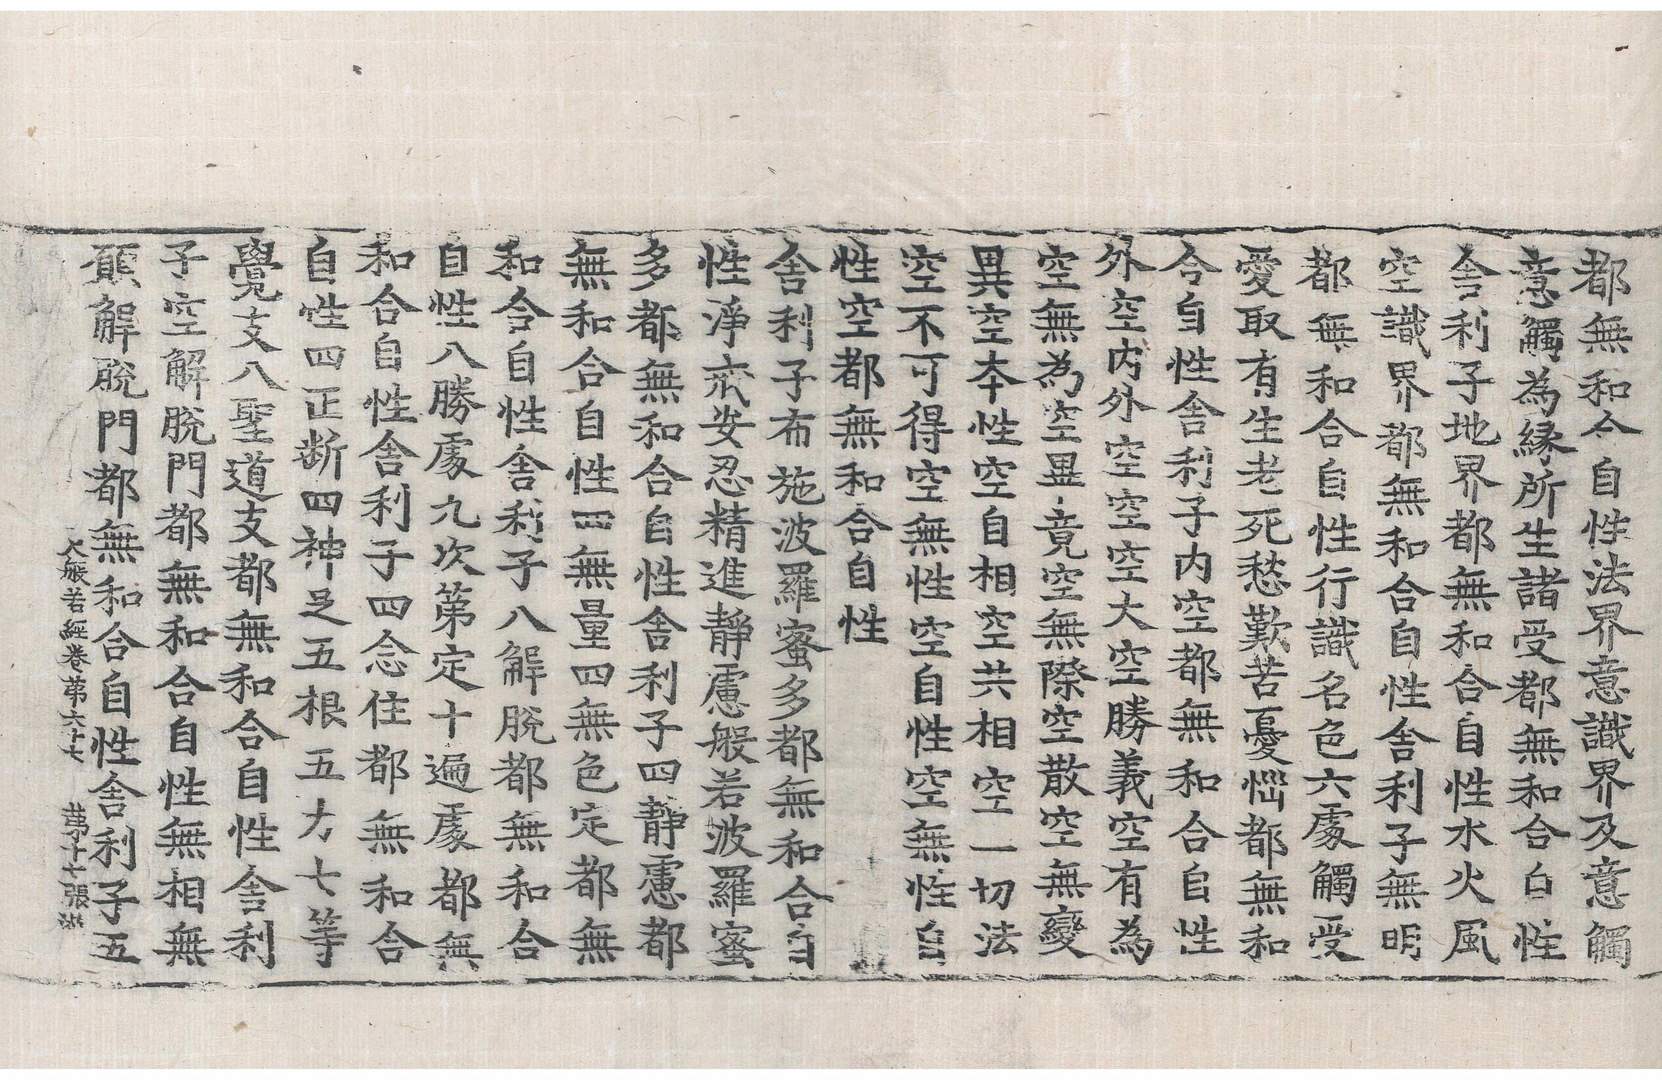 都無和合自性法界意識界及意觸
意觸為緣所生諸受都無和合自性
舍利子地界都無和合自性水火風
空識界都無和合自性舍利子無明
都無和合自性行識名色六處觸受
愛取有生老死愁歎苦憂惱都無和
合自性舍利子內空都無和合自性
外空內外空空空大空勝義空有為
空無為空畢竟空無際空散空無變
異空本性空自相空共相空一切法
空不可得空無性空自性空無性自
性空都無和合自性
舍利子布施波羅蜜多都無和合自
性淨戒安忍精進靜慮般若波羅蜜
多都無和合自性舍利子四靜慮都
無和合自性四無量四無色定都無
和合自性舍利子八解脫都無和合
自性八勝處九次第定十遍處都無
和合自性舍利子四念住都無和合
自性四正斷四神足五根五力七等
覺支八聖道支都無和合自性舍利
子空解脫門都無和合自性無相無
願解脫門都無和合自性舍利子五
大般若經卷第六十七 第十七張